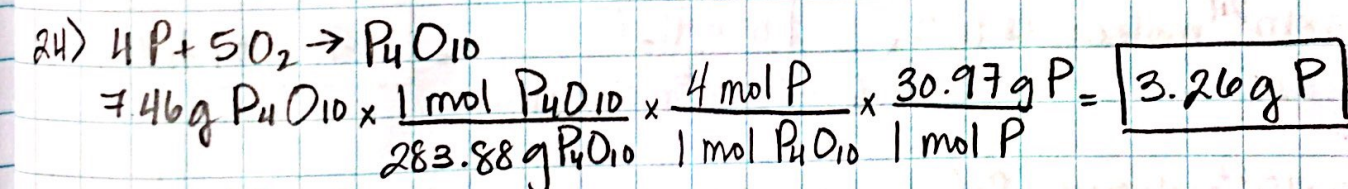 24) 4 P + 5 O₂ → P₄O₁₀
7.46g P₄O₁₀ x 1 mol P₄O₁₀ / 283.88 g P₄O₁₀ x 4 mol P / 1 mol P₄O₁₀ x 30.97g P / 1 mol P = 3.26g P